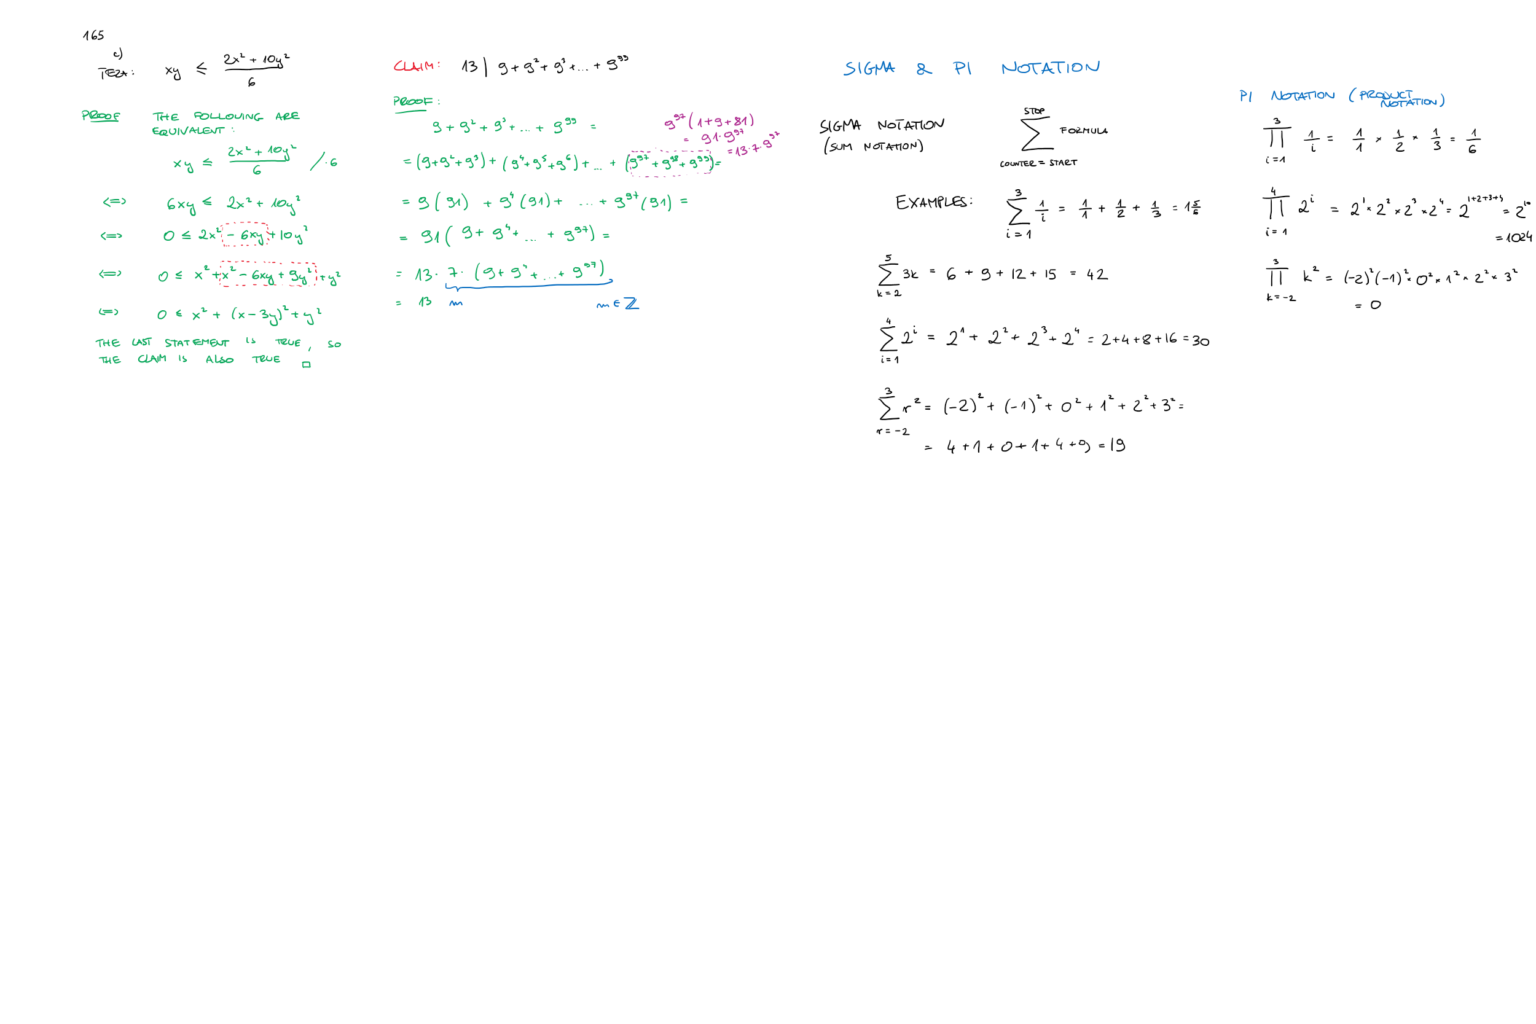 165
c)
TEZA: xy ≤ (2x² + 10y²)/6
PROOF THE FOLLOWING ARE
EQUIVALENT:
xy ≤ (2x² + 10y²)/6 /·6
<=> 6xy ≤ 2x² + 10y²
<=> 0 ≤ 2x² - 6xy + 10y²
<=> 0 ≤ x² + x² - 6xy + 9y² + y²
<=> 0 ≤ x² + (x-3y)² + y²
THE LAST STATEMENT IS TRUE, SO
THE CLAIM IS ALSO TRUE □
CLAIM: 13 | 9 + 9² + 9³ + ... + 9⁹⁹
PROOF:
9 + 9² + 9³ + ... + 9⁹⁹ =
9⁹⁷(1+9+81)
= 91·9⁹⁷
= 13·7·9⁹⁷
= (9+9²+9³) + (9⁴+9⁵+9⁶) + ... + (9⁹⁷+9⁹⁸+9⁹⁹) =
= 9(91) + 9⁴(91) + ... + 9⁹⁷(91) =
= 91(9 + 9⁴ + ... + 9⁹⁷) =
= 13·7·(9 + 9⁴ + ... + 9⁹⁷)
= 13 m m∈ℤ
SIGMA & PI NOTATION
SIGMA NOTATION
(SUM NOTATION)
STOP
∑ FORMULA
COUNTER = START
EXAMPLES: ∑_{i=1}^{3} 1/i = 1/1 + 1/2 + 1/3 = 1 5/6
∑_{k=2}^{5} 3k = 6 + 9 + 12 + 15 = 42
∑_{i=1}^{4} 2^i = 2¹ + 2² + 2³ + 2⁴ = 2+4+8+16 = 30
∑_{r=-2}^{3} r² = (-2)² + (-1)² + 0² + 1² + 2² + 3² =
= 4+1+0+1+4+9 = 19
PI NOTATION (PRODUCT
NOTATION)
∏_{i=1}^{3} 1/i = 1/1 × 1/2 × 1/3 = 1/6
∏_{i=1}^{4} 2^i = 2¹ × 2² × 2³ × 2⁴ = 2^{1+2+3+4} = 2¹⁰
= 1024
∏_{k=-2}^{3} k² = (-2)²(-1)² × 0² × 1² × 2² × 3²
= 0